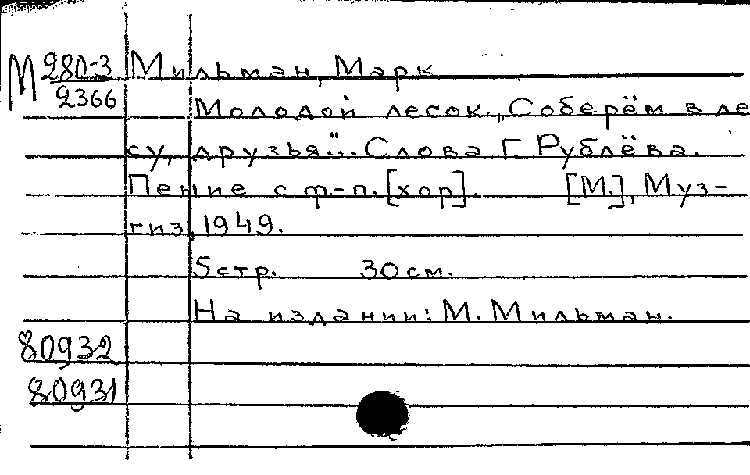 М 280-3 Мильман, Марк
2366
Молодой лесок. „Соберём в ле
су, друзья"... Слова Г. Рублёва.
Пение с ф-п. [хор]. [М.], Муз-
гиз, 1949.
5 стр. 30 см.
На издании: М. Мильман.
80932
80931